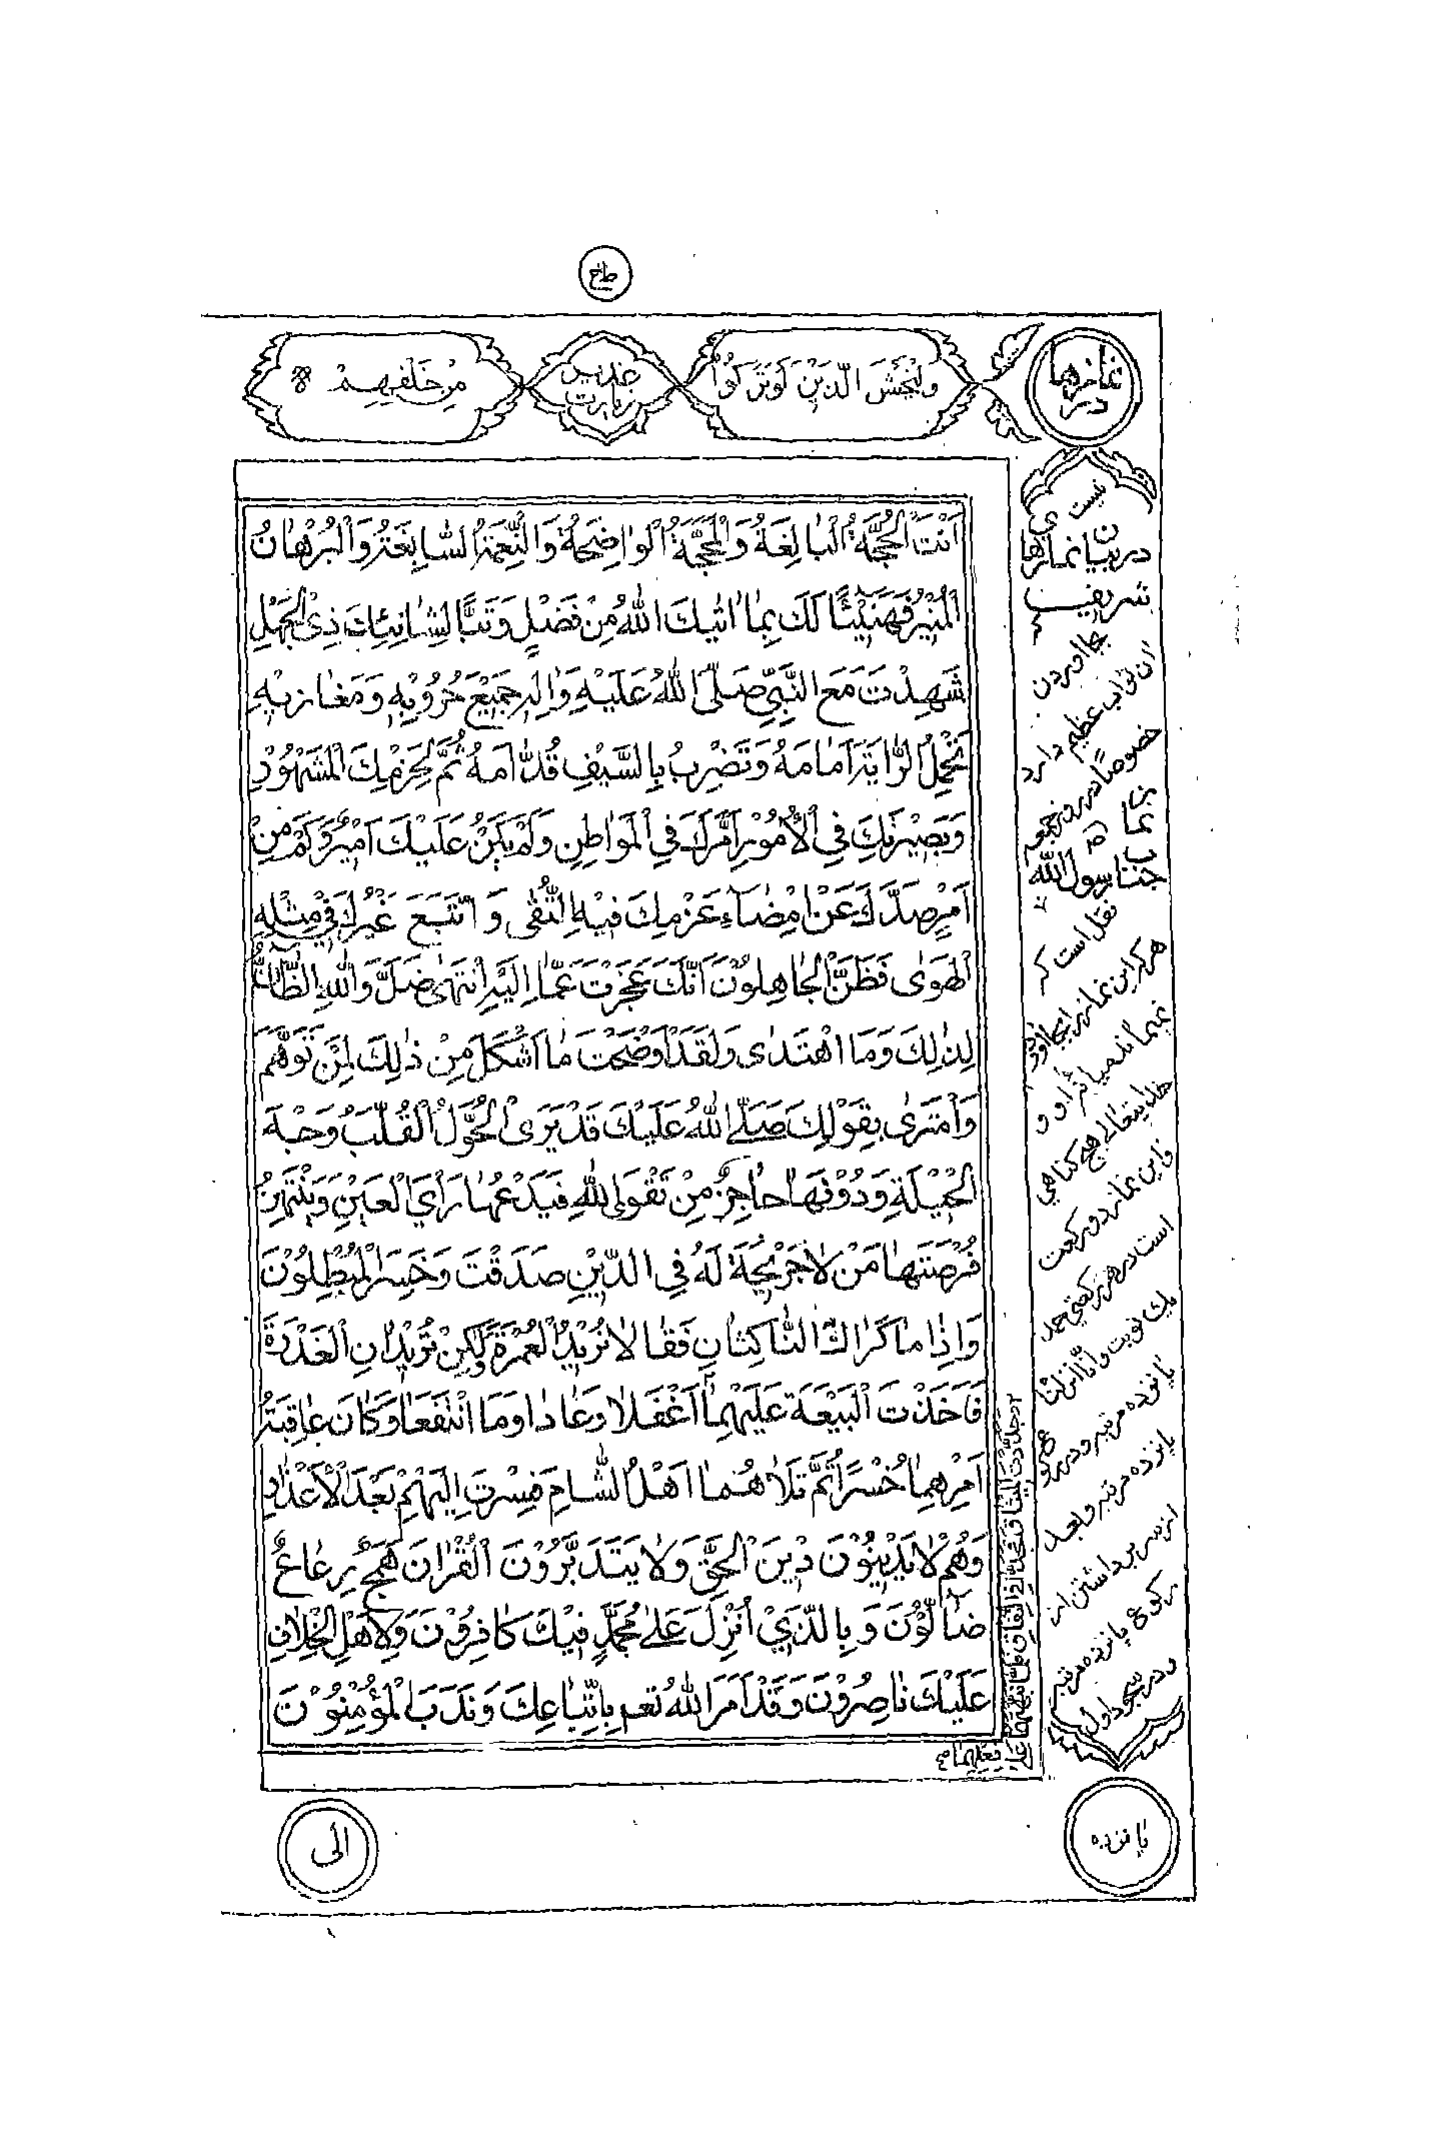 وَلْيَخْشَ الَّذِيْنَ لَوْ تَرَكُوْا
غدير
زيارت
مِنْ خَلْفِهِمْ
نمازها
در
اَنْتَ الْحُجَّةُ الْبٰالِغَةُ وَالْمَحَجَّةُ الْوٰاضِحَةُ وَالنِّعْمَةُ السّٰابِغَةُ وَالْبُرْهٰانُ
الْمُنِيْرُ فَهَنِيْئًا لَكَ بِمٰا اٰتٰيكَ اللهُ مِنْ فَضْلٍ وَتَبًّا لِشٰانِئِكَ ذِى الْجَهْلِ
شَهِدْتَ مَعَ النَّبِيِّ صَلَّى اللهُ عَلَيْهِ وَاٰلِهِ جَمِيْعَ حُرُوْبِهِ وَمَغٰازِيْهِ
تَحْمِلُ الرّٰايَةَ اَمٰامَهُ وَتَضْرِبُ بِالسَّيْفِ قُدّٰامَهُ ثُمَّ لِحَزْمِكَ الْمَشْهُوْدِ
وَبَصِيْرَتِكَ فِى الْاُمُوْرِ اَمَّرَكَ فِى الْمَوٰاطِنِ وَلَمْ يَكُنْ عَلَيْكَ اَمِيْرٌ وَكَمْ مِنْ
اَمْرٍ صَدَّكَ عَنْ اِمْضٰاءِ عَزْمِكَ فِيْهِ التُّقٰى وَاتَّبَعَ غَيْرُكَ فِيْ مِثْلِهِ
الْهَوٰى فَظَنَّ الْجٰاهِلُوْنَ اَنَّكَ عَجَزْتَ عَمّٰا اِلَيْهِ انْتَهٰى ضَلَّ وَاللهِ الظّٰانُّ
لِذٰلِكَ وَمَا اهْتَدٰى وَلَقَدْ اَوْضَحْتَ مٰا اَشْكَلَ مِنْ ذٰلِكَ لِمَنْ تَوَهَّمَ
وَامْتَرٰى بِقَوْلِكَ صَلَّى اللهُ عَلَيْكَ قَدْ يَرَى الْحُوَّلُ الْقُلَّبُ وَجْهَ
الْحِيْلَةِ وَدُوْنَهٰا حٰاجِزٌ مِنْ تَقْوَى اللهِ فَيَدَعُهٰا رَاْيَ الْعَيْنِ وَيَنْتَهِزُ
فُرْصَتَهٰا مَنْ لٰا حَرِيْجَةَ لَهُ فِى الدِّيْنِ صَدَقْتَ وَخَسِرَ الْمُبْطِلُوْنَ
وَاِذْ مٰاكَرَاكَ النّٰاكِثٰانِ فَقٰالٰا نُرِيْدُ الْعُمْرَةَ وَلٰكِنْ تُرِيْدٰانِ الْغَدْرَةَ
فَاَخَذْتَ الْبَيْعَةَ عَلَيْهِمٰا اَغْفَلٰا وَعٰادٰا وَمَا انْتَفَعٰا وَكٰانَ عٰاقِبَةُ
اَمْرِهِمٰا خُسْرًا ثُمَّ تَلٰاهُمٰا اَهْلُ الشّٰامِ فَسِرْتَ اِلَيْهِمْ بَعْدَ الْاِعْذٰارِ
وَهُمْ لٰا يَدِيْنُوْنَ دِيْنَ الْحَقِّ وَلٰا يَتَدَبَّرُوْنَ الْقُرْاٰنَ هَمَجٌ رِعٰاعٌ
ضٰالُّوْنَ وَبِالَّذِيْ اُنْزِلَ عَلٰى مُحَمَّدٍ فِيْكَ كٰافِرُوْنَ وَلِاَهْلِ الْخِلٰافِ
عَلَيْكَ نٰاصِرُوْنَ وَقَدْ اَمَرَ اللهُ تعم بِاتِّبٰاعِكَ وَنَدَبَ الْمُؤْمِنِيْنَ
نيست
در بيان نمازهاى
شريفيست
بجا اوردن
ان ثواب عظيم دارد
خصوصًا در روز جمعه
نماز
جناب رسول الله
نقل است كه
هر كه اين نماز بجا اورد
خدايتعالى هيچ گناهى
و اين نماز دو ركعت
است در هر ركعتى حمد
يك نوبت و انّا انزلنا
پانزده مرتبه و در ركوع
پانزده مرتبه و بعد
از سر برداشتن از
ركوع پانزده مرتبه
و در سجود اول
پانزده
الى